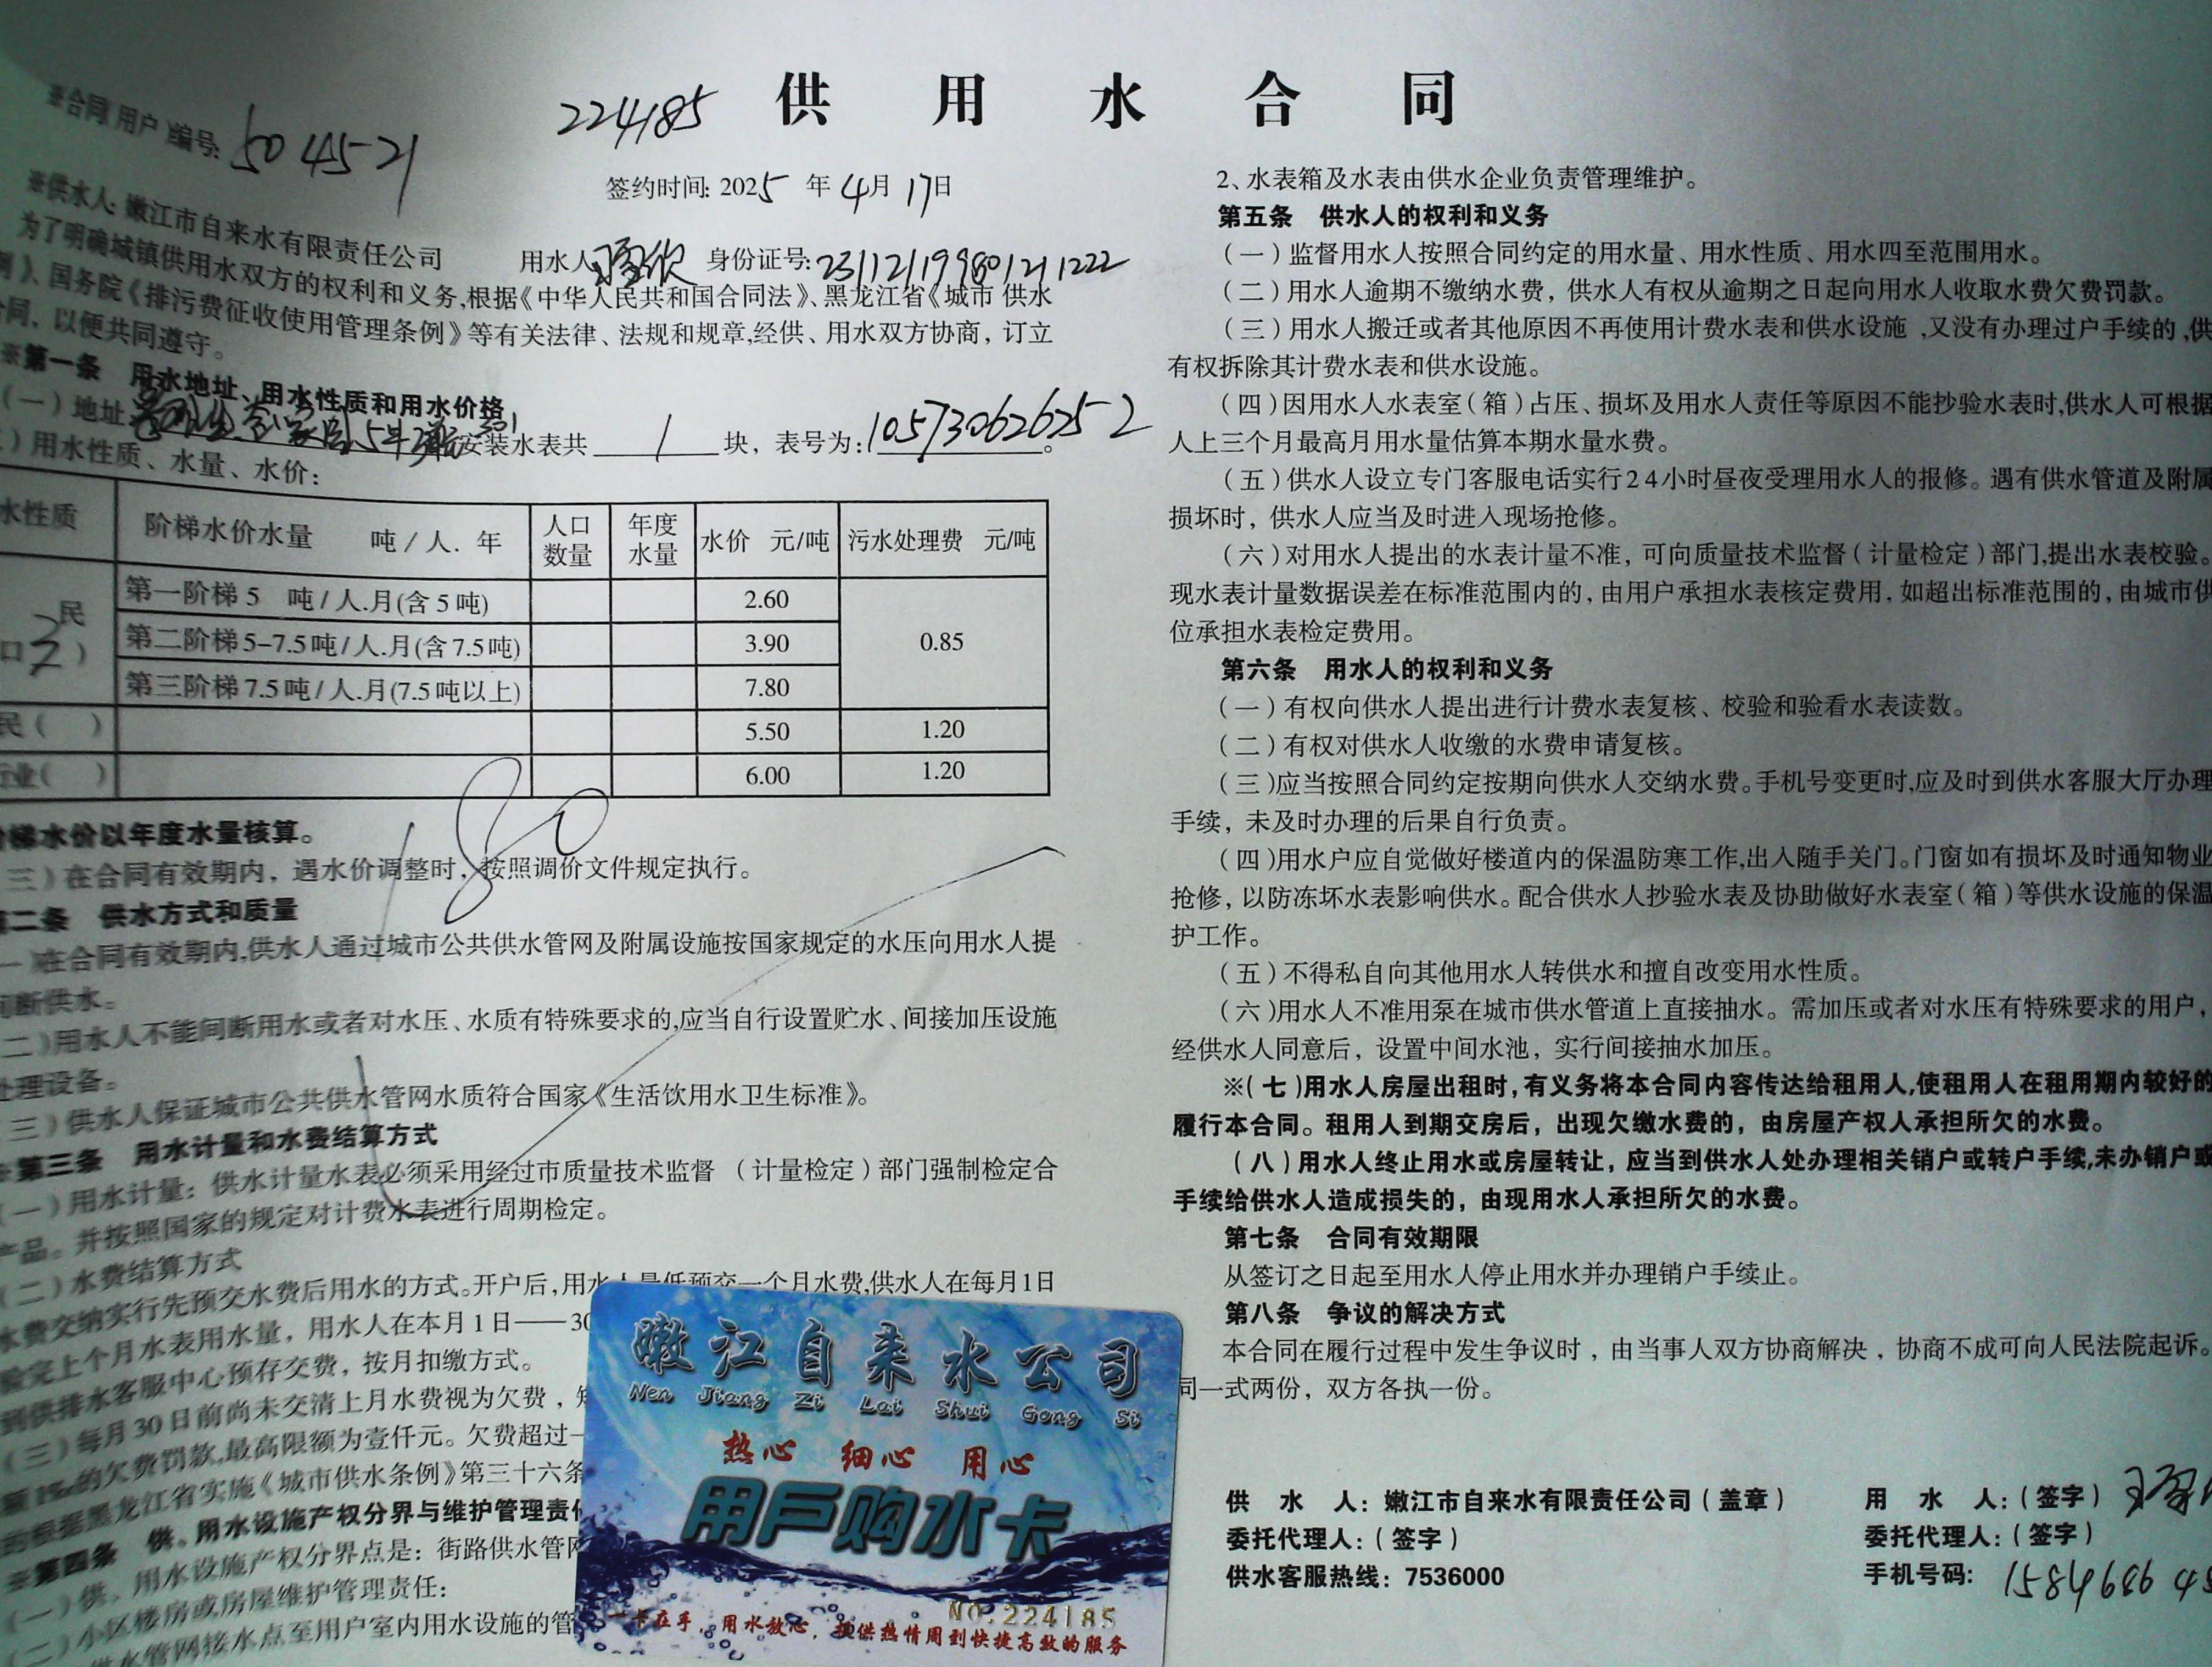 供用水合同
224185
※合同(用户)编号: 5045-21
签约时间: 2025年4月17日
※供水人: 嫩江市自来水有限责任公司 用水人 身份证号: 231121199801211222
为了明确城镇供用水双方的权利和义务,根据《中华人民共和国合同法》、黑龙江省《城市 供水
例》、国务院《排污费征收使用管理条例》等有关法律、法规和规章,经供、用水双方协商，订立
合同，以便共同遵守。
※第一条 用水地址、用水性质和用水价格
(一)地址 安装水表共 1 块，表号为: 105730626252。
)用水性质、水量、水价:
水性质 阶梯水价水量 吨/人.年 人口数量 年度水量 水价 元/吨 污水处理费 元/吨
民 第一阶梯 5 吨/人.月(含5吨) 2.60 0.85
口 ) 第二阶梯 5-7.5吨/人.月(含7.5吨) 3.90
第三阶梯 7.5吨/人.月(7.5吨以上) 7.80
民( ) 5.50 1.20
业( ) 6.00 1.20
180
阶梯水价以年度水量核算。
三)在合同有效期内，遇水价调整时，按照调价文件规定执行。
第二条 供水方式和质量
一)在合同有效期内,供水人通过城市公共供水管网及附属设施按国家规定的水压向用水人提
间断供水。
二)用水人不能间断用水或者对水压、水质有特殊要求的,应当自行设置贮水、间接加压设施
处理设备。
三)供水人保证城市公共供水管网水质符合国家《生活饮用水卫生标准》。
※第三条 用水计量和水费结算方式
(一)用水计量: 供水计量水表必须采用经过市质量技术监督 (计量检定)部门强制检定合
产品。并按照国家的规定对计费水表进行周期检定。
(二)水费结算方式
水费交纳实行先预交水费后用水的方式。开户后,用水人最低预交一个月水费,供水人在每月1日
验完上个月水表用水量，用水人在本月1日——30
到供排水客服中心预存交费，按月扣缴方式。
(三)每月30日前尚未交清上月水费视为欠费，
的欠费罚款,最高限额为壹仟元。欠费超过一
的根据黑龙江省实施《城市供水条例》第三十六条
※第四条 供、用水设施产权分界与维护管理责任
(一)供、用水设施产权分界点是: 街路供水管网
(二)小区楼房或房屋维护管理责任:
供水管网接水点至用户室内用水设施的管
2、水表箱及水表由供水企业负责管理维护。
第五条 供水人的权利和义务
(一)监督用水人按照合同约定的用水量、用水性质、用水四至范围用水。
(二)用水人逾期不缴纳水费，供水人有权从逾期之日起向用水人收取水费欠费罚款。
(三)用水人搬迁或者其他原因不再使用计费水表和供水设施,又没有办理过户手续的,供
有权拆除其计费水表和供水设施。
(四)因用水人水表室(箱)占压、损坏及用水人责任等原因不能抄验水表时,供水人可根据
人上三个月最高月用水量估算本期水量水费。
(五)供水人设立专门客服电话实行24小时昼夜受理用水人的报修。遇有供水管道及附属
损坏时，供水人应当及时进入现场抢修。
(六)对用水人提出的水表计量不准，可向质量技术监督(计量检定)部门,提出水表校验。
现水表计量数据误差在标准范围内的，由用户承担水表核定费用，如超出标准范围的，由城市供
位承担水表检定费用。
第六条 用水人的权利和义务
(一)有权向供水人提出进行计费水表复核、校验和验看水表读数。
(二)有权对供水人收缴的水费申请复核。
(三)应当按照合同约定按期向供水人交纳水费。手机号变更时,应及时到供水客服大厅办理
手续，未及时办理的后果自行负责。
(四)用水户应自觉做好楼道内的保温防寒工作,出入随手关门。门窗如有损坏及时通知物业
抢修，以防冻坏水表影响供水。配合供水人抄验水表及协助做好水表室(箱)等供水设施的保温
护工作。
(五)不得私自向其他用水人转供水和擅自改变用水性质。
(六)用水人不准用泵在城市供水管道上直接抽水。需加压或者对水压有特殊要求的用户，
经供水人同意后，设置中间水池，实行间接抽水加压。
※(七)用水人房屋出租时，有义务将本合同内容传达给租用人,使租用人在租用期内较好的
履行本合同。租用人到期交房后，出现欠缴水费的，由房屋产权人承担所欠的水费。
(八)用水人终止用水或房屋转让，应当到供水人处办理相关销户或转户手续,未办销户或
手续给供水人造成损失的，由现用水人承担所欠的水费。
第七条 合同有效期限
从签订之日起至用水人停止用水并办理销户手续止。
第八条 争议的解决方式
本合同在履行过程中发生争议时，由当事人双方协商解决，协商不成可向人民法院起诉。
同一式两份，双方各执一份。
供 水 人: 嫩江市自来水有限责任公司(盖章) 用 水 人:(签字)
委托代理人:(签字) 委托代理人:(签字)
供水客服热线: 7536000 手机号码:
嫩江自来水公司
Nen Jiang Zi Lai Shui Gong Si
热心 细心 用心
用户购水卡
NO.224185
一卡在手，用水放心，提供热情周到快捷高效的服务